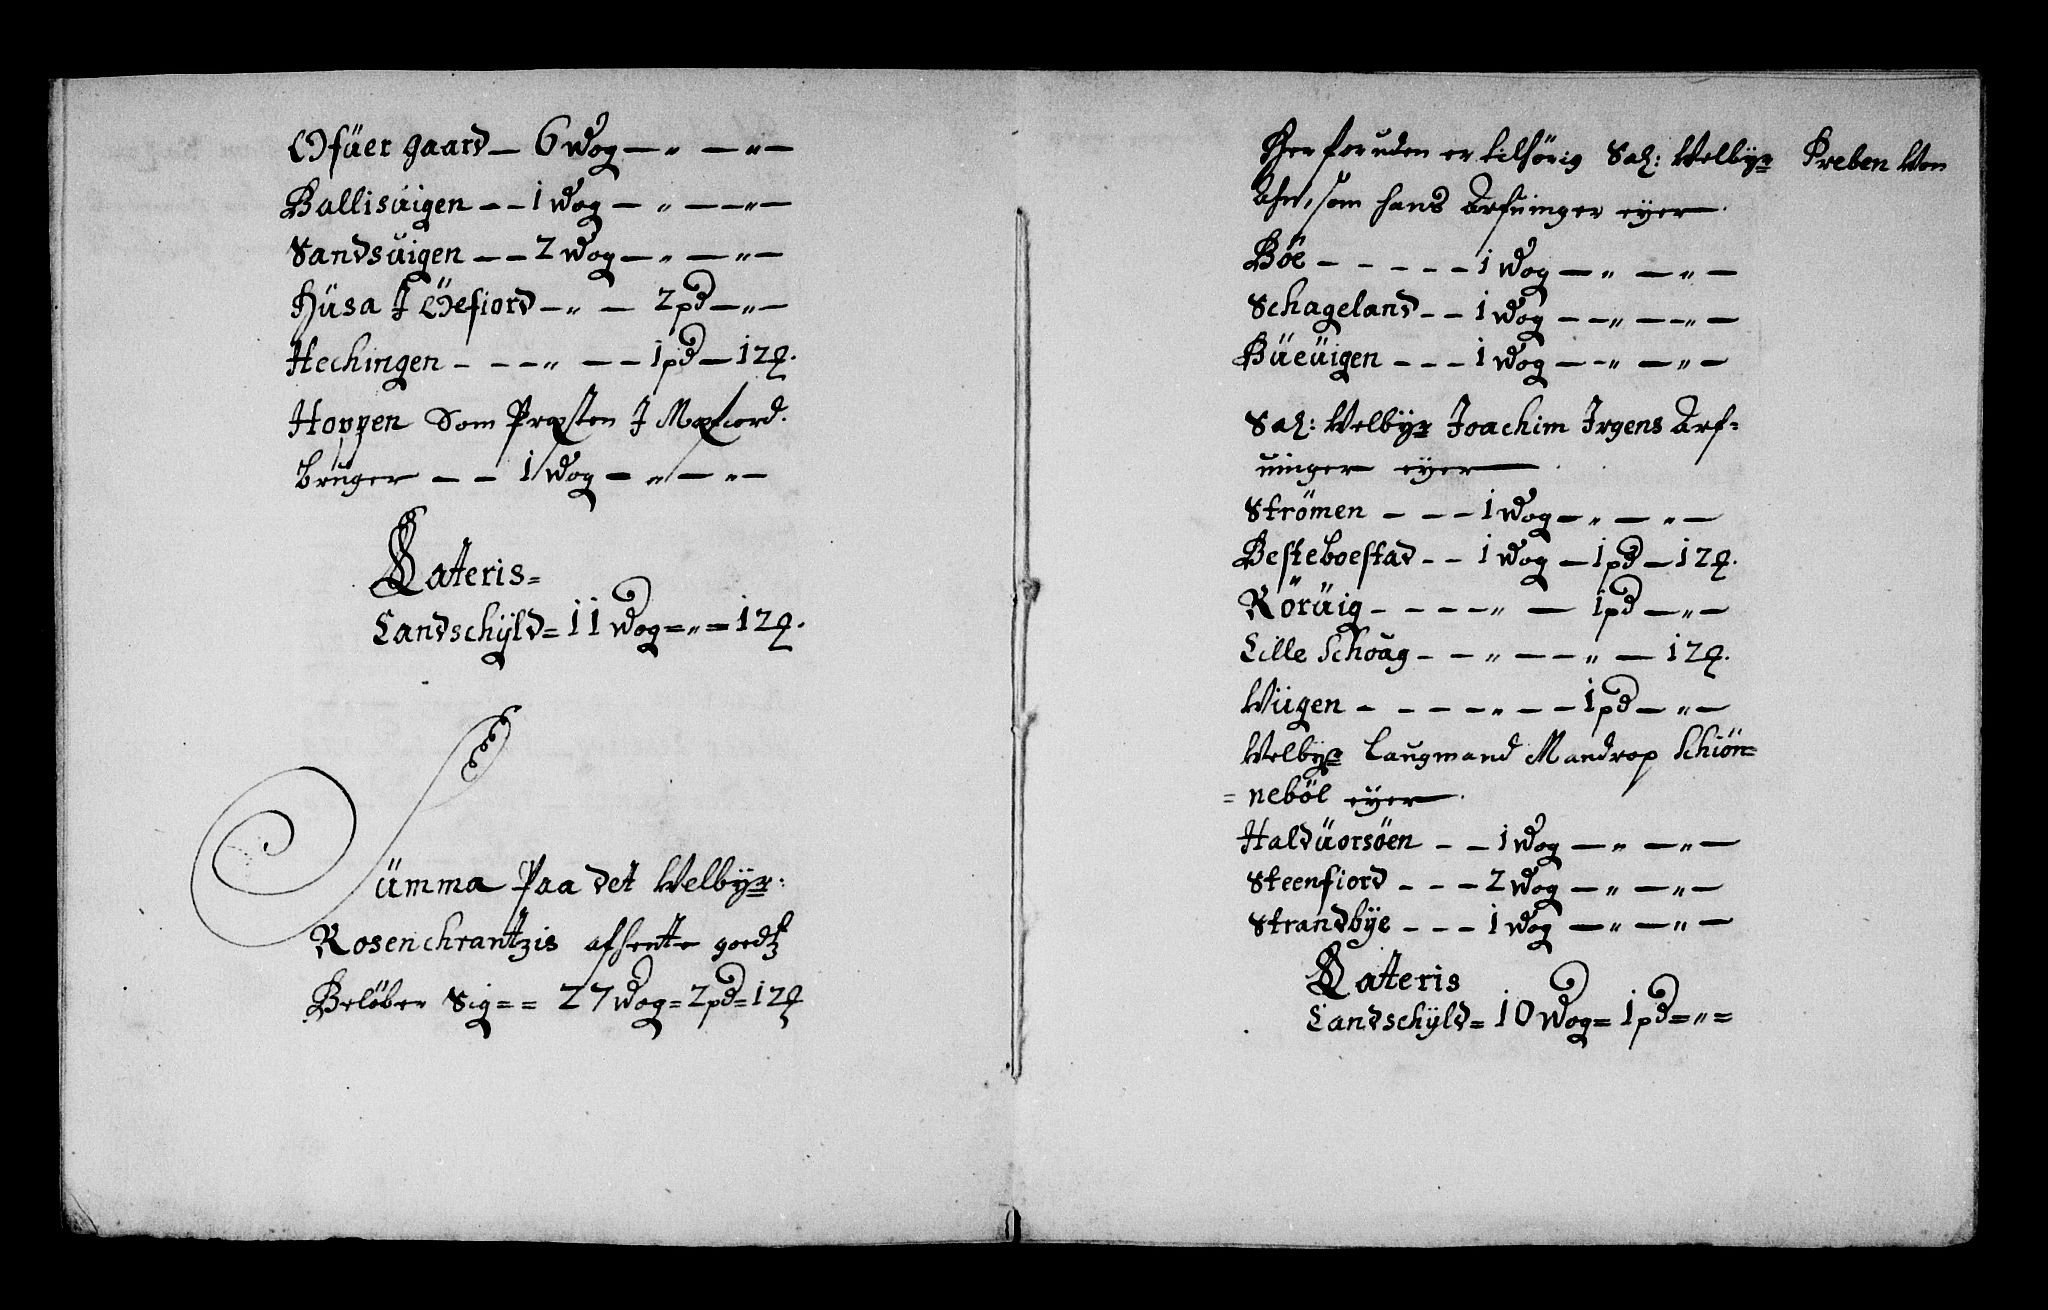 Ofüer gaard — 6 Wog — „ — „ —
Ballisuigen — — 1 Wog — „ — — „ —
Sandsuigen — — 2 Wog — „ — „ —
Hüsa J Öefiord — „ — 2 pd — „ —
Hechingen - — — „ — — 1 pd — 12 ₰.
Hoppen Som Prosten J
bruger — — 1 Wog — „ — „ —
Lateris =
Landschÿld = 11 Wog = „ = 12 ₰.
Sümma Paa det Velbÿr:
Rosenchrantzis afsente goedtz
Beløber Sig = = 27 Wog = 2 pd = 12 ₰
Her foruden er tilhörig Sal: Velbÿr Preben Von
Ahn, som hans Arfuinger eÿer.
Böe - - - - - 1 Wog — „ — „ —
Schageland - - 1 Wog — — „ — „ —
Büeüigen - - - 1 Wog — — „ — „ —
Sal: Velbÿr Joachim Irgens Arf=
uinger eÿer.
Strömen - - - 1 Wog — „ — „ —
Besteboestad - - 1 Wog — 1 pd — 12 ₰.
Röruig - - - - „ — 1 pd — „ —
Lille Schoug - — „ — — „ — 12 ₰.
Viigen - - - - „ — — 1 pd — „ —
Velbÿr Laugmand Mandrop Schiön=
= neböl eÿer.
Haldüorsöen - - 1 Wog — „ — „ —
Steenfiord - - - 2 Wog — „ — „ —
Strandbÿe - - - 1 Wog — „ — „ —
Latteris
Landschÿld = 10 Wog = 1 pd = „ =